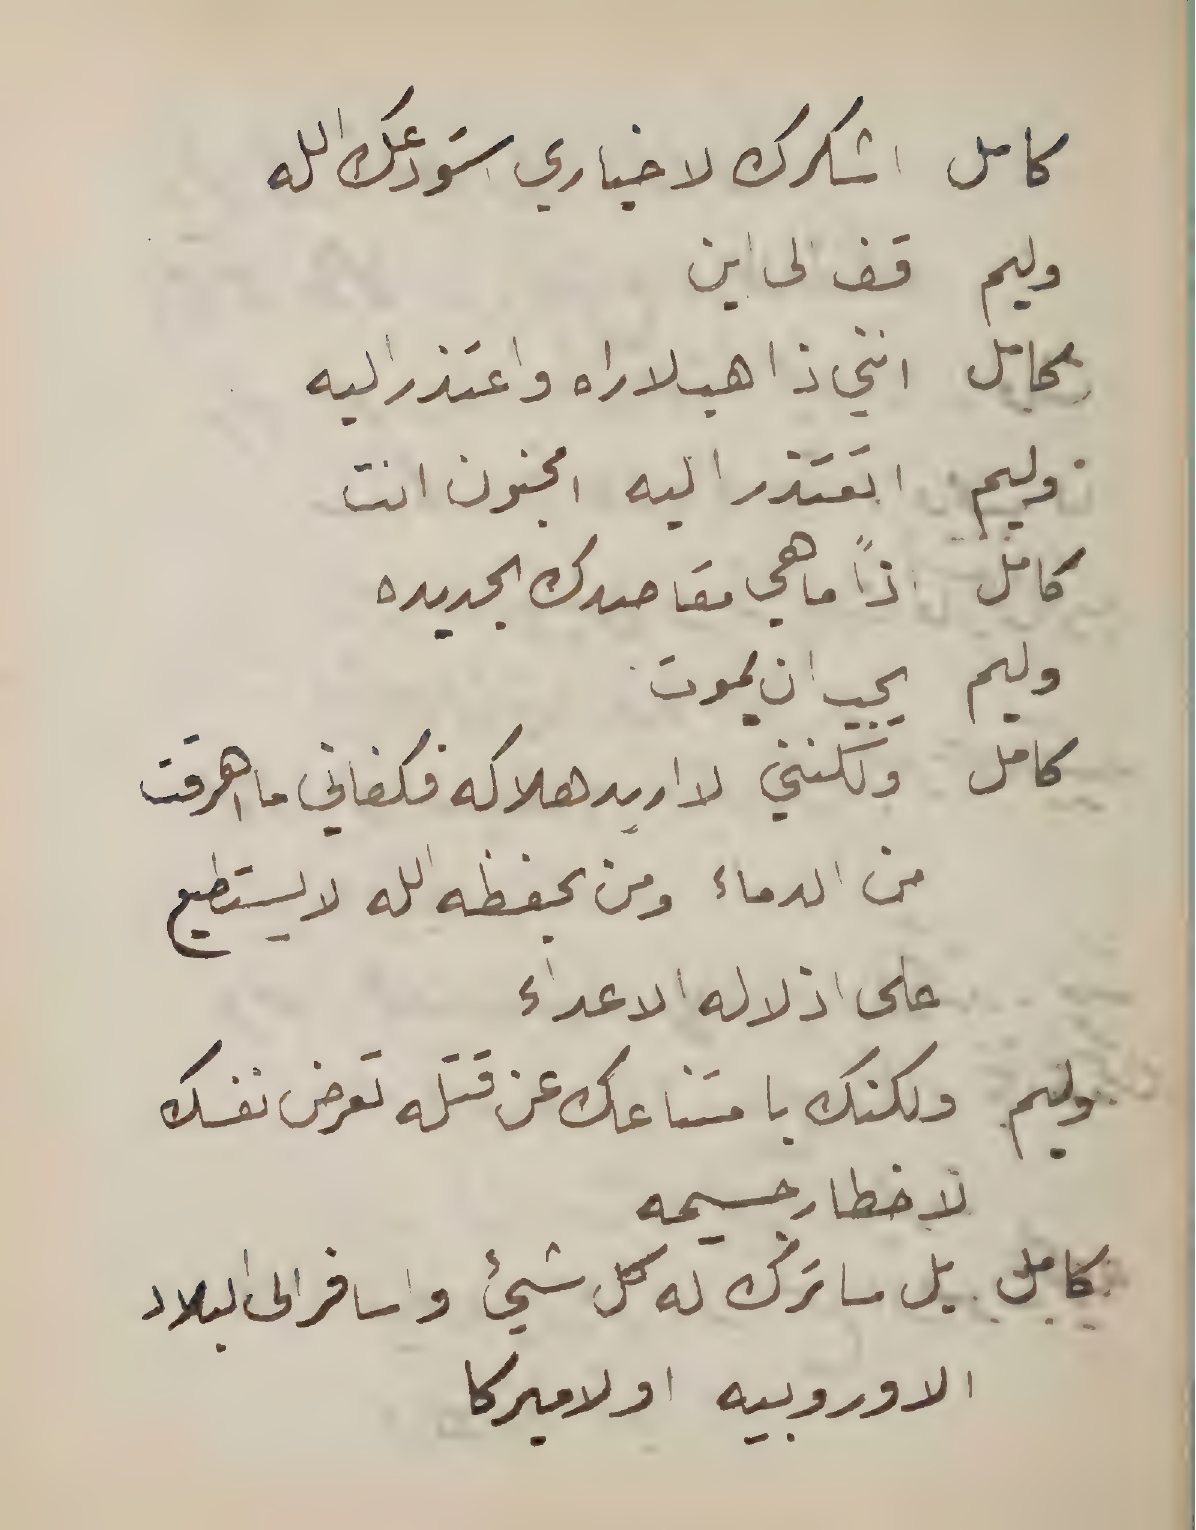 كامل اشكرك لاخباري استودعك الله
وليم قف الى اين
كامل انني ذاهب لاراه واعتذر اليه
وليم اتعتذر اليه امجنون انت
كامل اذاً ما هي مقاصدك الجديده
وليم يجب ان يموت
كامل ولكنني لا اريد هلاكه فكفاني ما اهرقت
من الدماء ومن يحفظه الله لا يستطيع
على اذلاله الاعداء
وليم ولكنك بامتناعك عن قتله تعرض نفسك
لاخطار جسيمه
كامل بل ساترك له كل شيئ واسافر الى البلاد
الاوروبيه او لاميركا